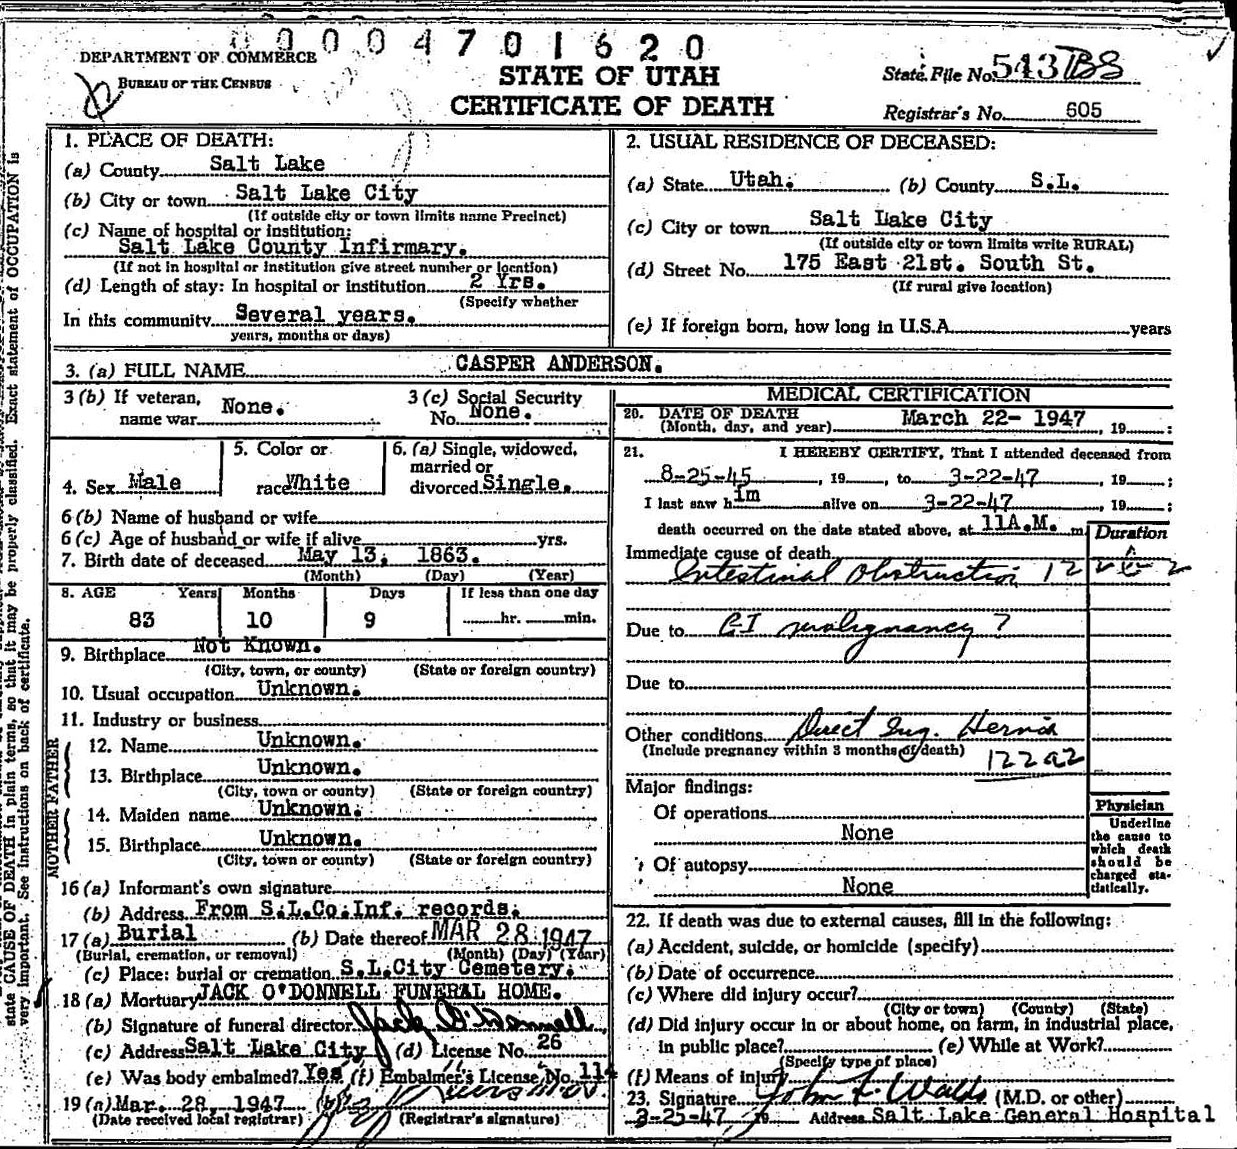 00004701620
DEPARTMENT OF COMMERCE
BUREAU OF THE CENSUS
STATE OF UTAH
CERTIFICATE OF DEATH
State File No. 543
Registrar's No. 605
1. PLACE OF DEATH:
(a) County Salt Lake
(b) City or town Salt Lake City
(If outside city or town limits name Precinct)
(c) Name of hospital or institution:
Salt Lake County Infirmary.
(If not in hospital or institution give street number or location)
(d) Length of stay: In hospital or institution 2 Yrs.
(Specify whether
In this community Several years.
years, months or days)
2. USUAL RESIDENCE OF DECEASED:
(a) State Utah. (b) County S.L.
(c) City or town Salt Lake City
(If outside city or town limits write RURAL)
(d) Street No. 175 East 21st. South St.
(If rural give location)
(e) If foreign born, how long in U.S.A. years
3. (a) FULL NAME CASPER ANDERSON.
3 (b) If veteran,
name war None.
3 (c) Social Security
No. None.
4. Sex Male
5. Color or
race White
6. (a) Single, widowed,
married or
divorced Single.
6 (b) Name of husband or wife
6 (c) Age of husband or wife if alive yrs.
7. Birth date of deceased May 13, 1863.
(Month) (Day) (Year)
8. AGE Years Months Days If less than one day
83 10 9 hr. min.
9. Birthplace Not Known.
(City, town, or county) (State or foreign country)
10. Usual occupation Unknown.
11. Industry or business
FATHER
12. Name Unknown.
13. Birthplace Unknown.
(City, town or county) (State or foreign country)
MOTHER
14. Maiden name Unknown.
15. Birthplace Unknown.
(City, town or county) (State or foreign country)
16 (a) Informant's own signature
(b) Address From S.L.Co.Inf. records.
17 (a) Burial (b) Date thereof MAR 28 1947
(Burial, cremation, or removal) (Month) (Day) (Year)
(c) Place: burial or cremation S.L.City Cemetery.
18 (a) Mortuary JACK O'DONNELL FUNERAL HOME.
(b) Signature of funeral director Jack O'Donnell
(c) Address Salt Lake City (d) License No. 26
(e) Was body embalmed? Yes (f) Embalmer's License No. 114
19 (a) Mar. 28, 1947 (b)
(Date received local registrar) (Registrar's signature)
MEDICAL CERTIFICATION
20. DATE OF DEATH
(Month, day, and year) March 22- 1947, 19 :
21. I HEREBY CERTIFY, That I attended deceased from
8-25-45, 19 , to 3-22-47, 19 ;
I last saw him alive on 3-22-47, 19 ;
death occurred on the date stated above, at 11A.M. m
Duration
Immediate cause of death
Intestinal Obstruction
Due to G-I malignancy?
Due to
Other conditions Direct Ing. Hernia
(Include pregnancy within 3 months of death)
122a2
Major findings:
Of operations
None
Of autopsy
None
Physician
Underline
the cause to
which death
should be
charged sta-
tistically.
22. If death was due to external causes, fill in the following:
(a) Accident, suicide, or homicide (specify)
(b) Date of occurrence
(c) Where did injury occur?
(City or town) (County) (State)
(d) Did injury occur in or about home, on farm, in industrial place,
in public place? (e) While at Work?
(Specify type of place)
(f) Means of injury
23. Signature John F. Waldo (M.D. or other)
3-25-47 19 Address Salt Lake General Hospital
state CAUSE OF DEATH in plain terms, so that it may be properly classified. Exact statement of OCCUPATION is
very important. See instructions on back of certificate.